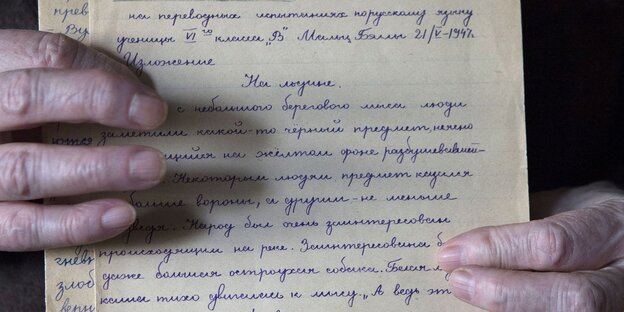 на переводных испытаниях по русскому языку
ученицы VI го класса "В" Мальц Бэллы 21/V-1947.
Изложение
На льдине.
с небольшого берегового мыса люди
заметили какой-то чёрный предмет, неясно
щийся на жёлтом фоне разбушевавшей-
Некоторым людям предмет казался
больше вороны, а другим - не меньше
ведя. Народ был очень заинтересован
происходящим на реке. Заинтересована б
даже большая остроухая собака. Белая
тихо двигалась к мысу. "А ведь эт
прев
Ву
ются
гнев
злоб
верн